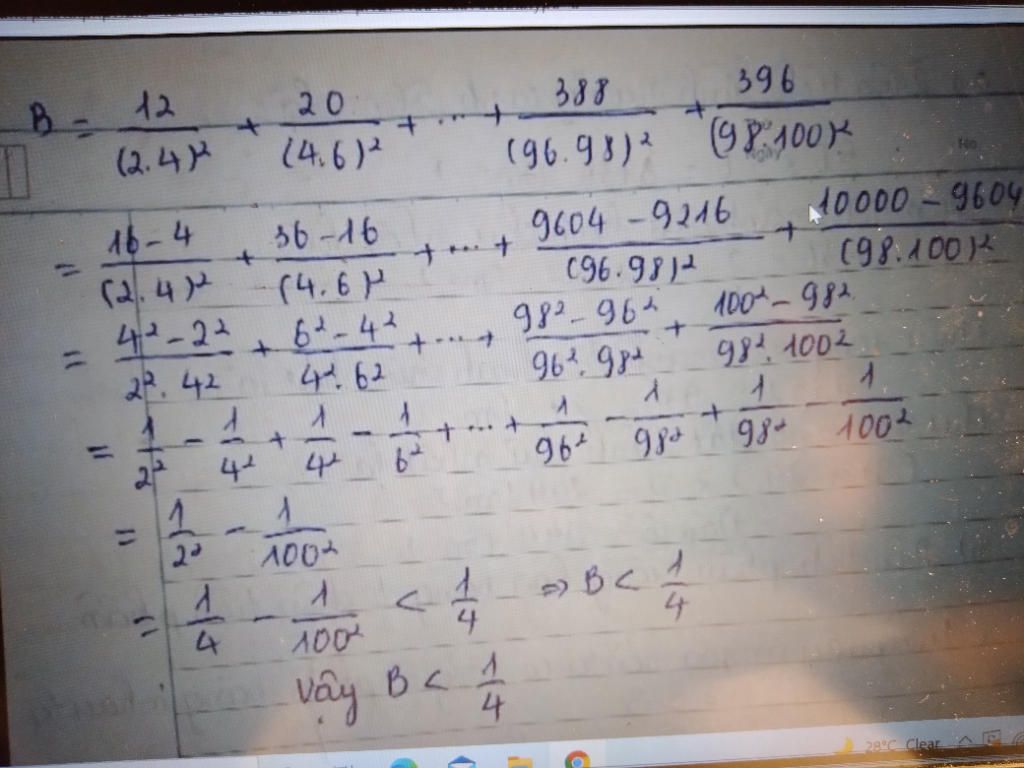 B = 12/(2.4)² + 20/(4.6)² + ... + 388/(96.98)² + 396/(98.100)²
= 16-4/(2.4)² + 36-16/(4.6)² + ... + 9604-9216/(96.98)² + 10000-9604/(98.100)²
= 4²-2²/2².4² + 6²-4²/4².6² + ... + 98²-96²/96².98² + 100²-98²/98².100²
= 1/2² - 1/4² + 1/4² - 1/6² + ... + 1/96² - 1/98² + 1/98² - 1/100²
= 1/2² - 1/100²
= 1/4 - 1/100² < 1/4 ⇒ B < 1/4
Vậy B < 1/4
28°C Clear